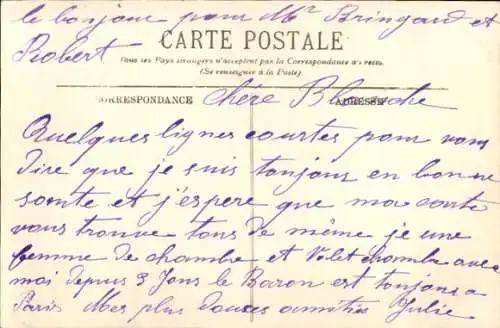 le bonjour pour Mr Bringard et
Robert
CARTE POSTALE
Tous les Pays étrangers n'acceptent pas la Correspondance au recto.
(Se renseigner à la Poste)
CORRESPONDANCE
ADRESSE
chére Blanche
Quelques lignes courtes pour vous
dire que je suis toujour en bonne
sante et j'espere que ma carte
vous trouve tous de même je une
femme de chambre et Valet chambre avec
moi depuis 3 Jous le Baron est toujour a
Paris Mes plus douces amitiés Julie